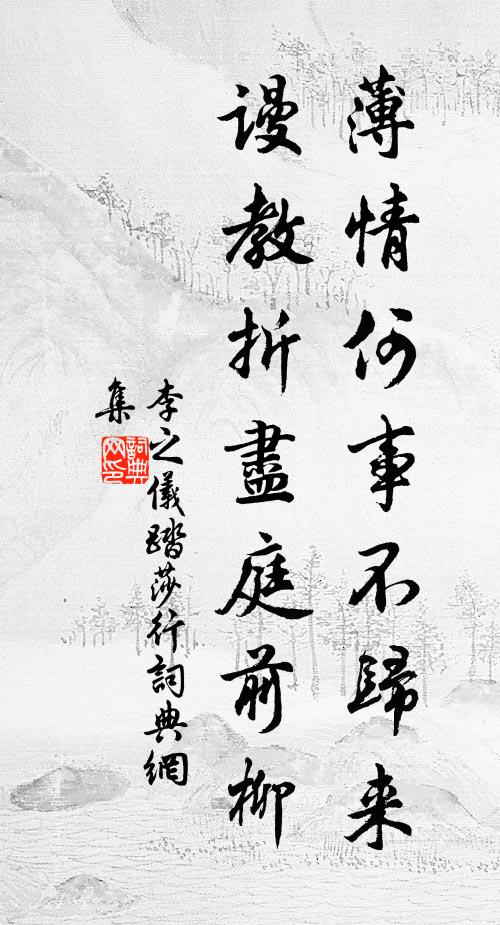 薄情何事不歸来
謾教折盡庭前柳
李之儀踏莎行詞典網
集
詞典网印